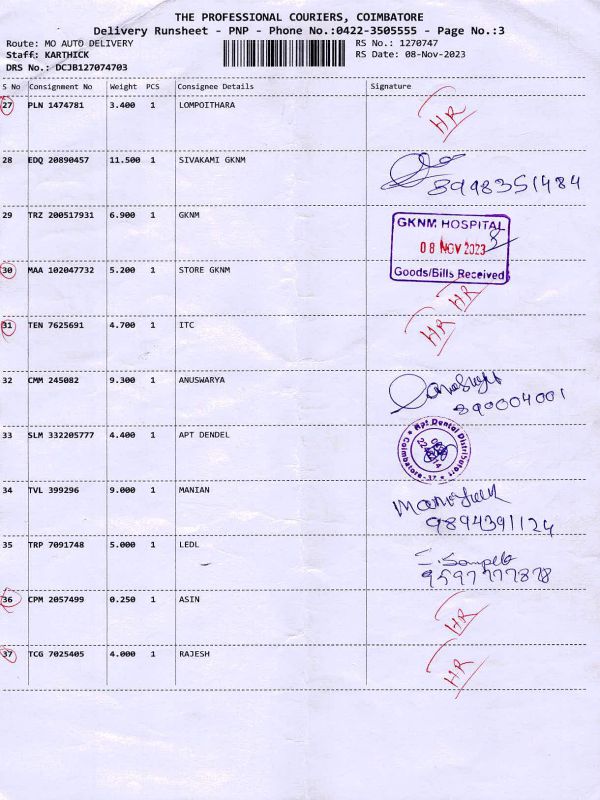 THE PROFESSIONAL COURIERS, COIMBATORE
Delivery Runsheet - PNP - Phone No.:0422-3505555 - Page No.:3
Route: MO AUTO DELIVERY RS No.: 1270747
Staff: KARTHICK RS Date: 08-Nov-2023
DRS No.: DCJB127074703
S No Consignment No Weight PCS Consignee Details Signature
27 PLN 1474781 3.400 1 LOMPOITHARA
HR
28 EDQ 20890457 11.500 1 SIVAKAMI GKNM
8998351484
29 TRZ 200517931 6.900 1 GKNM
GKNM HOSPITAL
08 NOV 2023
Goods/Bills Received
30 MAA 102047732 5.200 1 STORE GKNM
HR
31 TEN 7625691 4.700 1 ITC
HR
32 CMM 245082 9.300 1 ANUSWARYA
890004001
33 SLM 332205777 4.400 1 APT DENDEL
Apt Dental Distributors
Coimbatore-37
34 TVL 399296 9.000 1 MANIAN
9894391124
35 TRP 7091748 5.000 1 LEDL
9597777878
36 CPM 2057499 0.250 1 ASIN
HR
37 TCG 7025405 4.000 1 RAJESH
HR